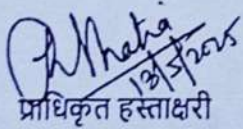 13/5/2025
प्राधिकृत हस्ताक्षरी